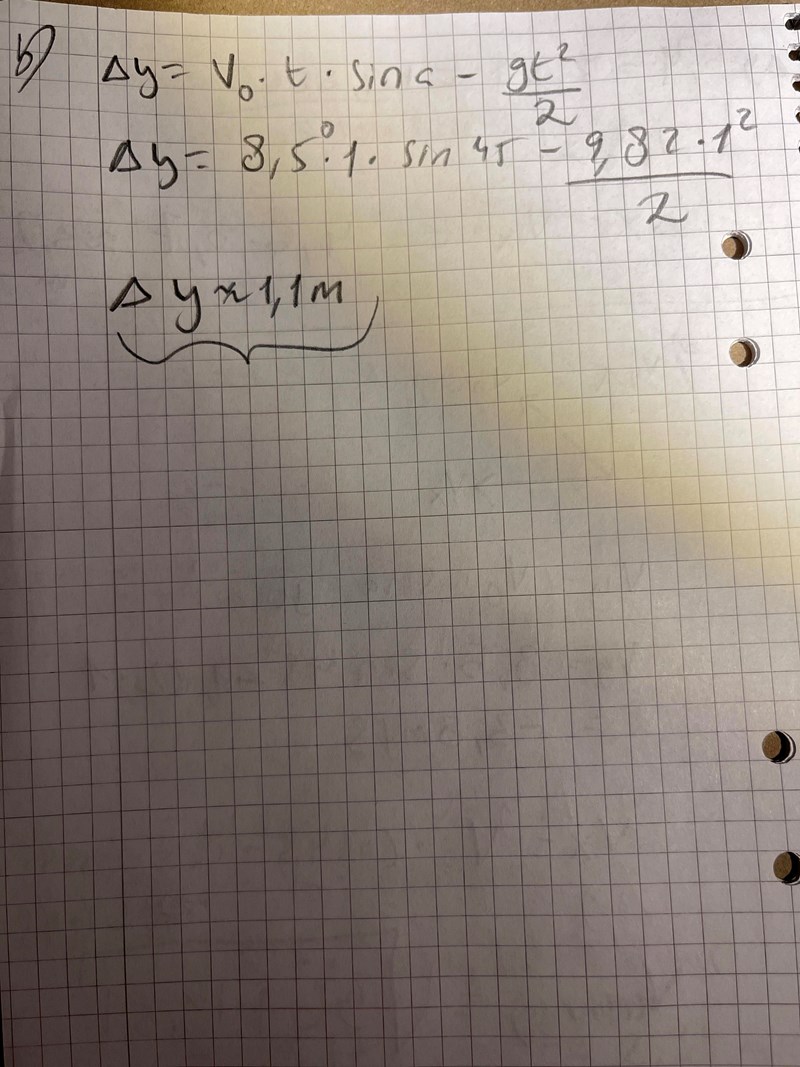 b) Δy = V₀ · t · sin α - gt²/2
Δy = 8,5° · 1 · sin 45 - 9,82 · 1²/2
Δy ≈ 1,1 m